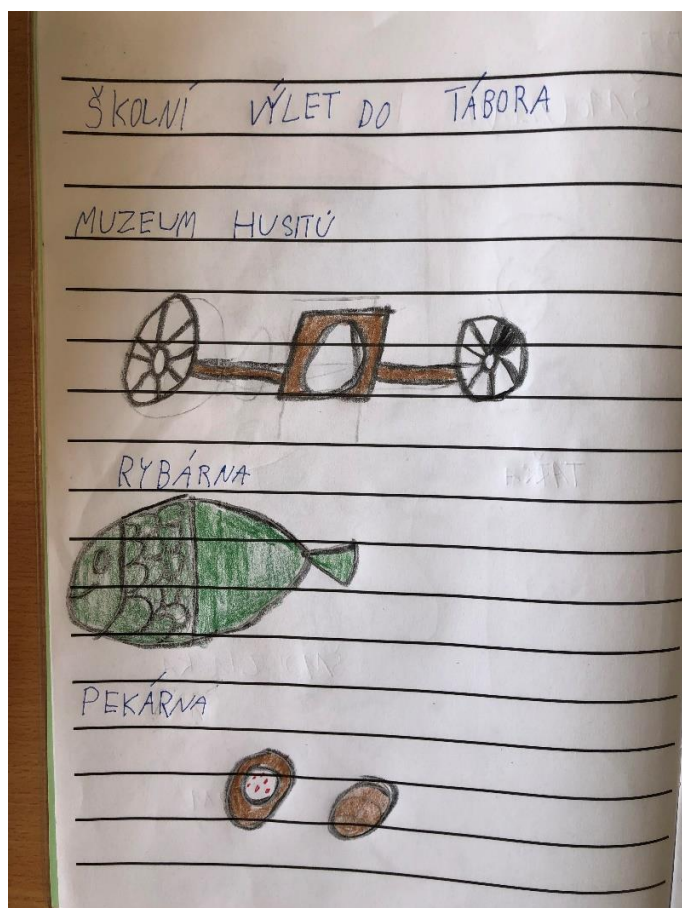 ŠKOLNÍ VÝLET DO TÁBORA
MUZEUM HUSITŮ
RYBÁRNA
PEKÁRNA